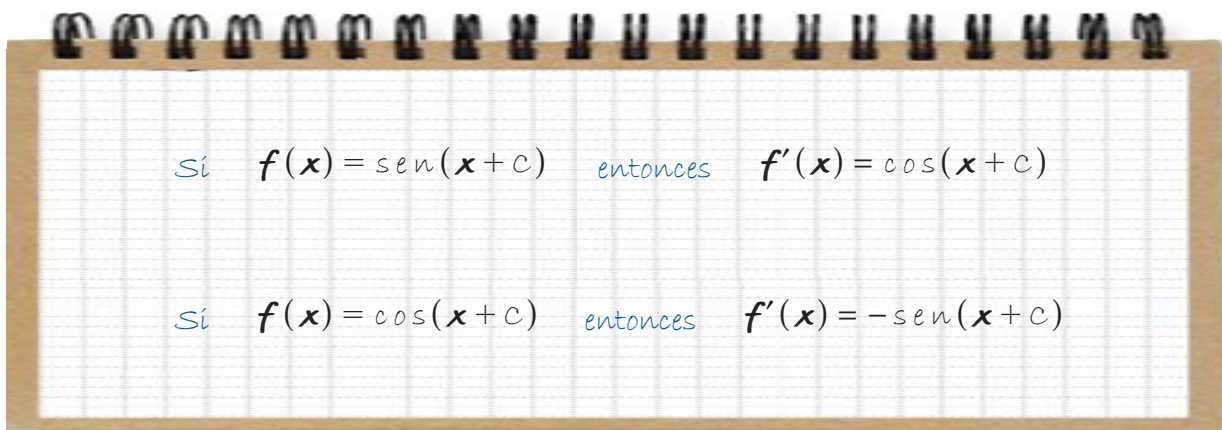 Si f(x) = sen(x + c) entonces f'(x) = cos(x + c)
Si f(x) = cos(x + c) entonces f'(x) = −sen(x + c)